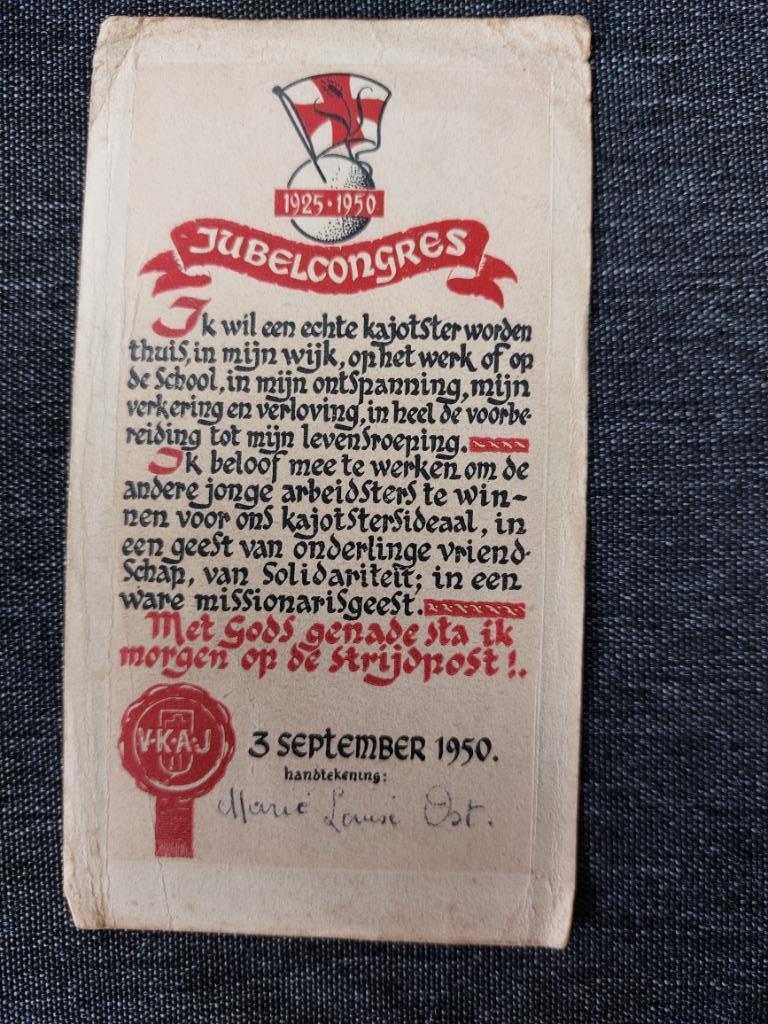 1925 · 1950
JUBELCONGRES
Ik wil een echte kajotster worden
thuis, in mijn wijk, op het werk of op
de School, in mijn ontspanning, mijn
verkering en verloving, in heel de voorbe-
reiding tot mijn levensroeping.
Ik beloof mee te werken om de
andere jonge arbeidsters te win-
nen voor ons kajotstersideaal, in
een geest van onderlinge vriend-
Schap, van Solidariteit; in een
ware missionarisgeest.
Met Gods genade sta ik
morgen op de strijdpost!.
V·K·A·J
3 SEPTEMBER 1950.
handtekening:
Marie Louise Ost.